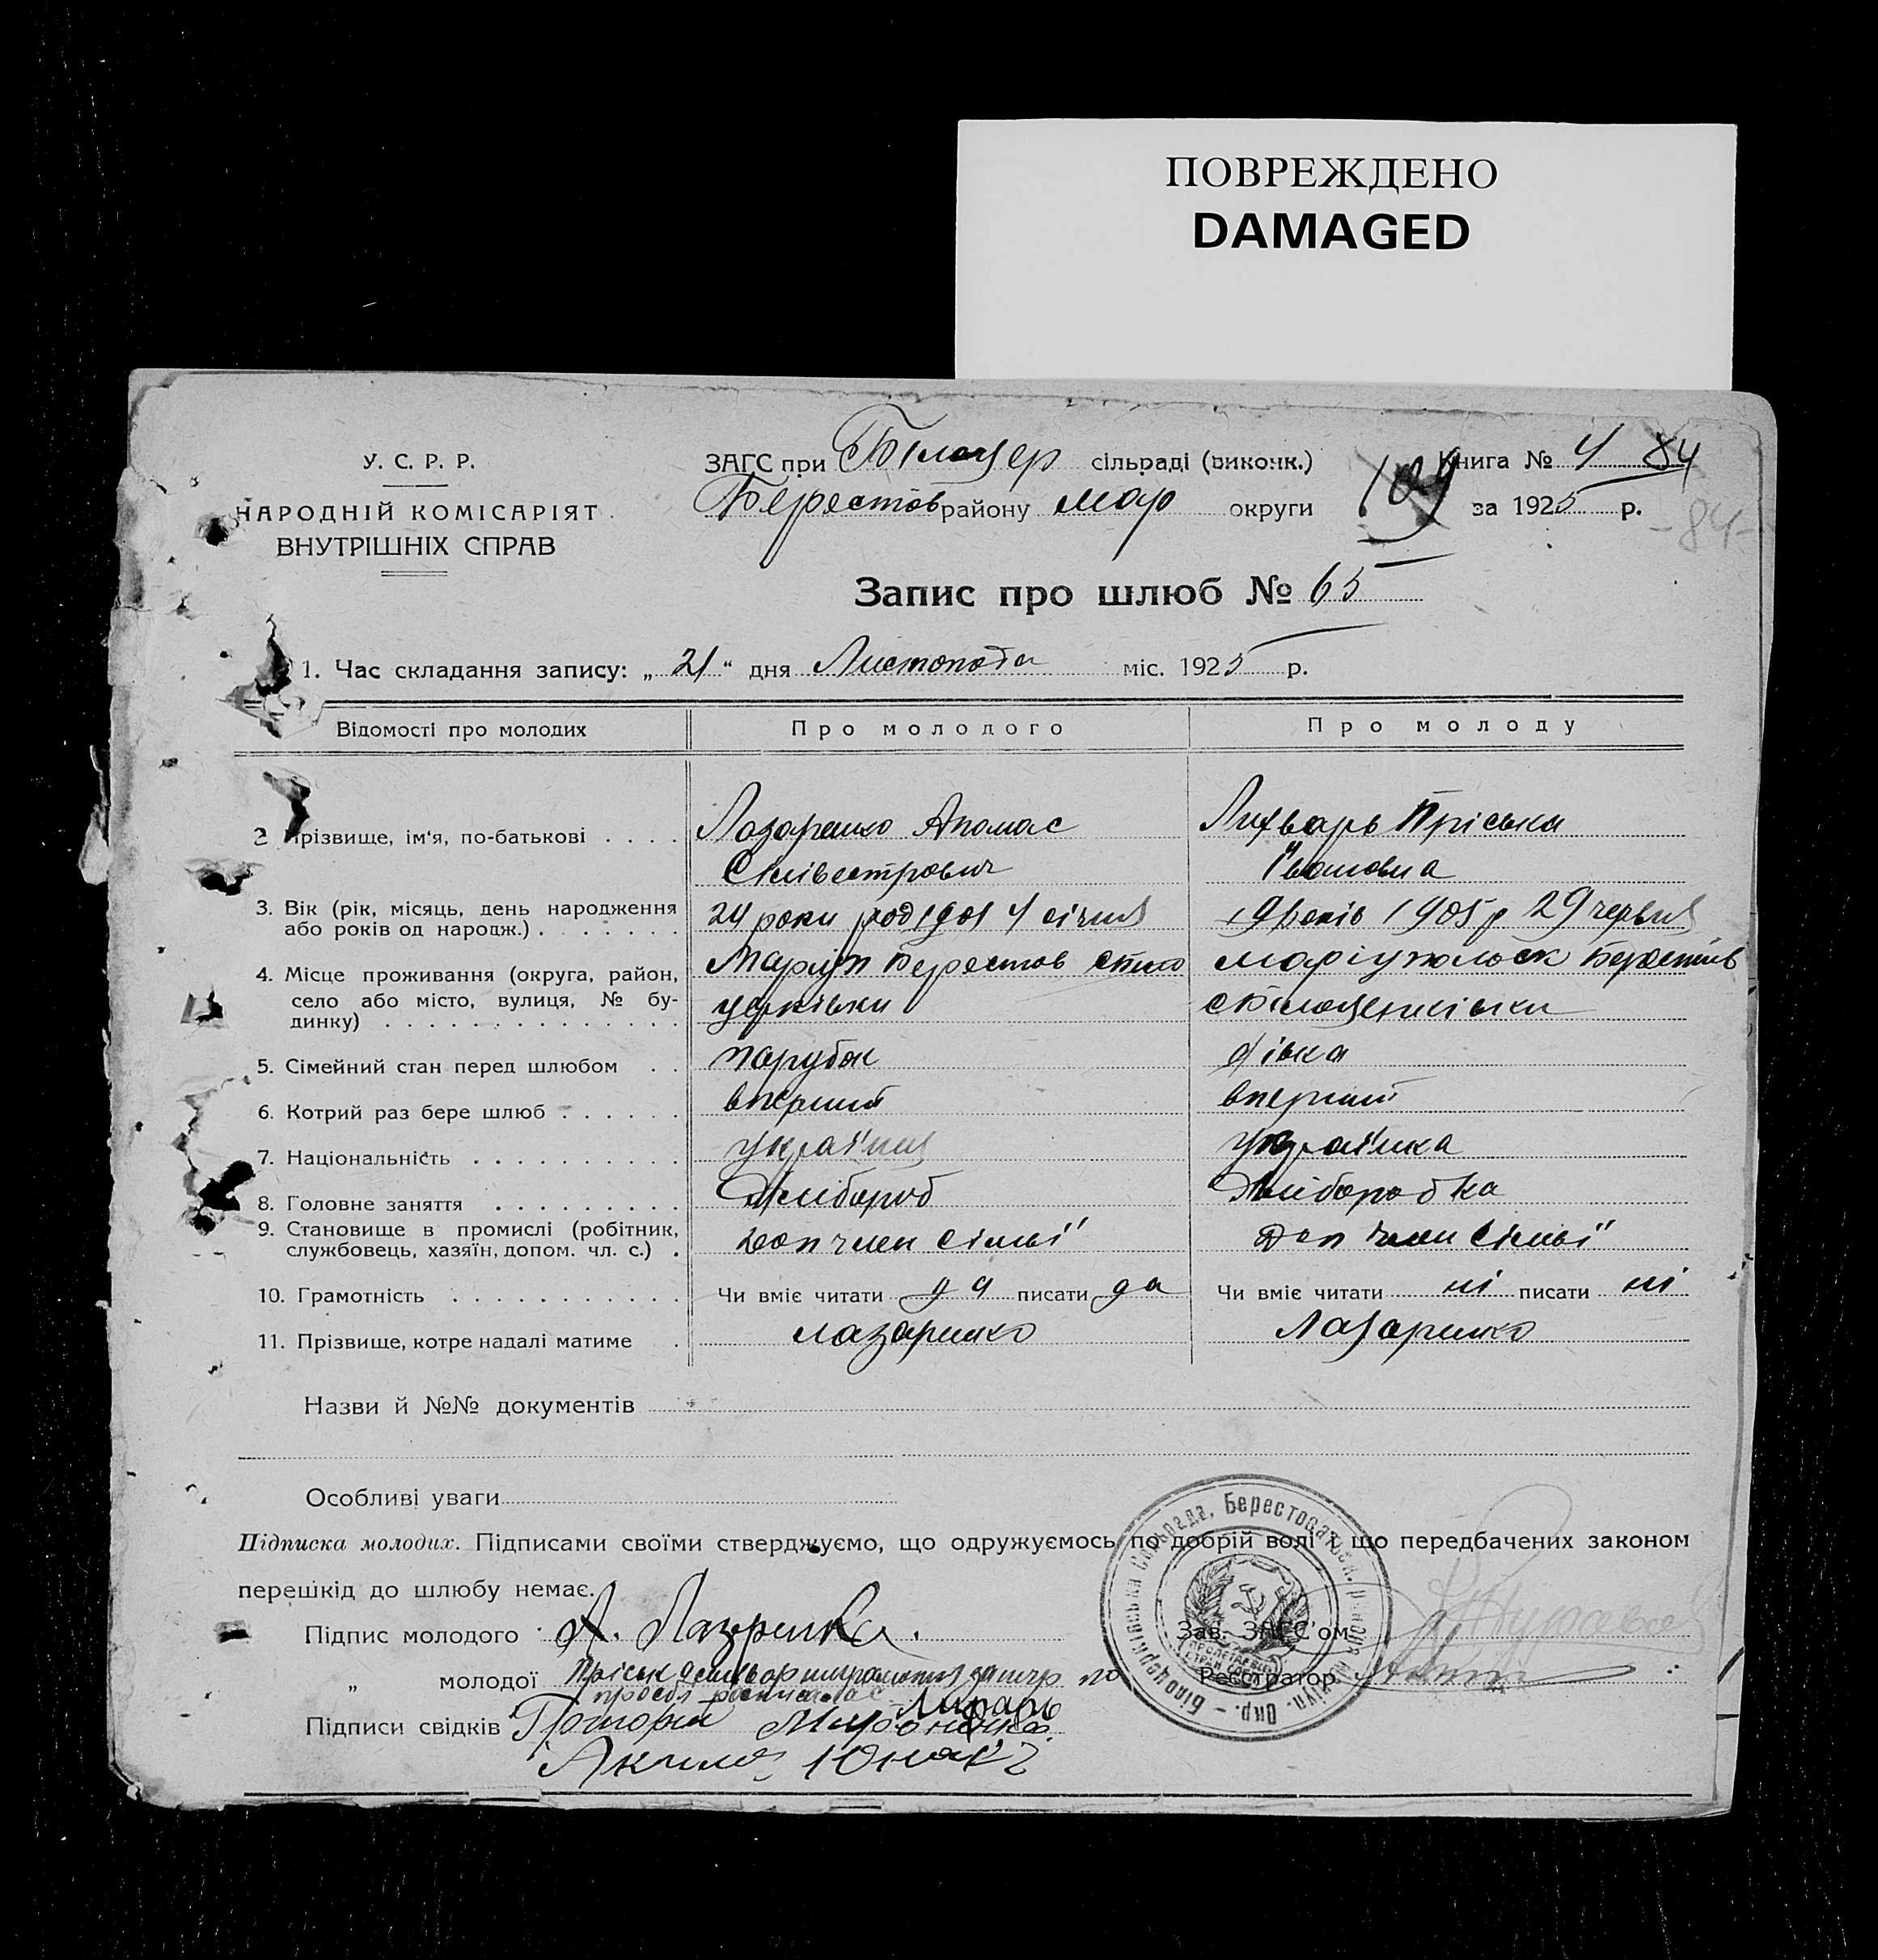 ПОВРЕЖДЕНО
DAMAGED
У. С. Р. Р.
НАРОДНІЙ КОМІСАРІЯТ
ВНУТРІШНІХ СПРАВ
ЗАГС при Білоцер сільраді (виконк.)
Книга № 4 84
Берестов району мар округи 109 за 1925 р.
-84-
Запис про шлюб № 65
1. Час складання запису: „ 21 “ дня Листопада міс. 1925 р.
Відомості про молодих
Про молодого
Про молоду
2 Прізвище, ім‘я, по-батькові
Лазаренко Апанас
Сілівестрович
Лихварь Пріська
Івановна
3. Вік (рік, місяць, день народження
або років од народж.)
24 роки род 1901 4 січня
19 років 1905 р 29 червня
4. Місце проживання (округа, район,
село або місто, вулиця, № бу-
динку)
Маріуп Берестов
церківки
маріупольск Берестів
с Білоцерківки
5. Сімейний стан перед шлюбом
парубок
дівка
6. Котрий раз бере шлюб
вперший
вперший
7. Національність
українць
українка
8. Головне заняття
Хлібороб
Хліборобка
9. Становище в промислі (робітник,
службовець, хазяїн, допом. чл. с.)
доп член сімьї
Доп член сімьї
10. Грамотність
Чи вміє читати да писати да
Чи вміє читати ні писати ні
11. Прізвище, котре надалі матиме
Лазаренко
Лазаренко
Назви й №№ документів
Особливі уваги
Підписка молодих. Підписами своїми стверджуємо, що одружуємось по добрій волі і що передбачених законом
перешкід до шлюбу немає.
Підпис молодого А. Лазаренко.
„ молодої по
Лихварь
Підписи свідків
Зав. ЗАГС‘ом
Реєстратор
Білоцерківська Сільрада, Берестоватськ. району Маріуп. Окр.